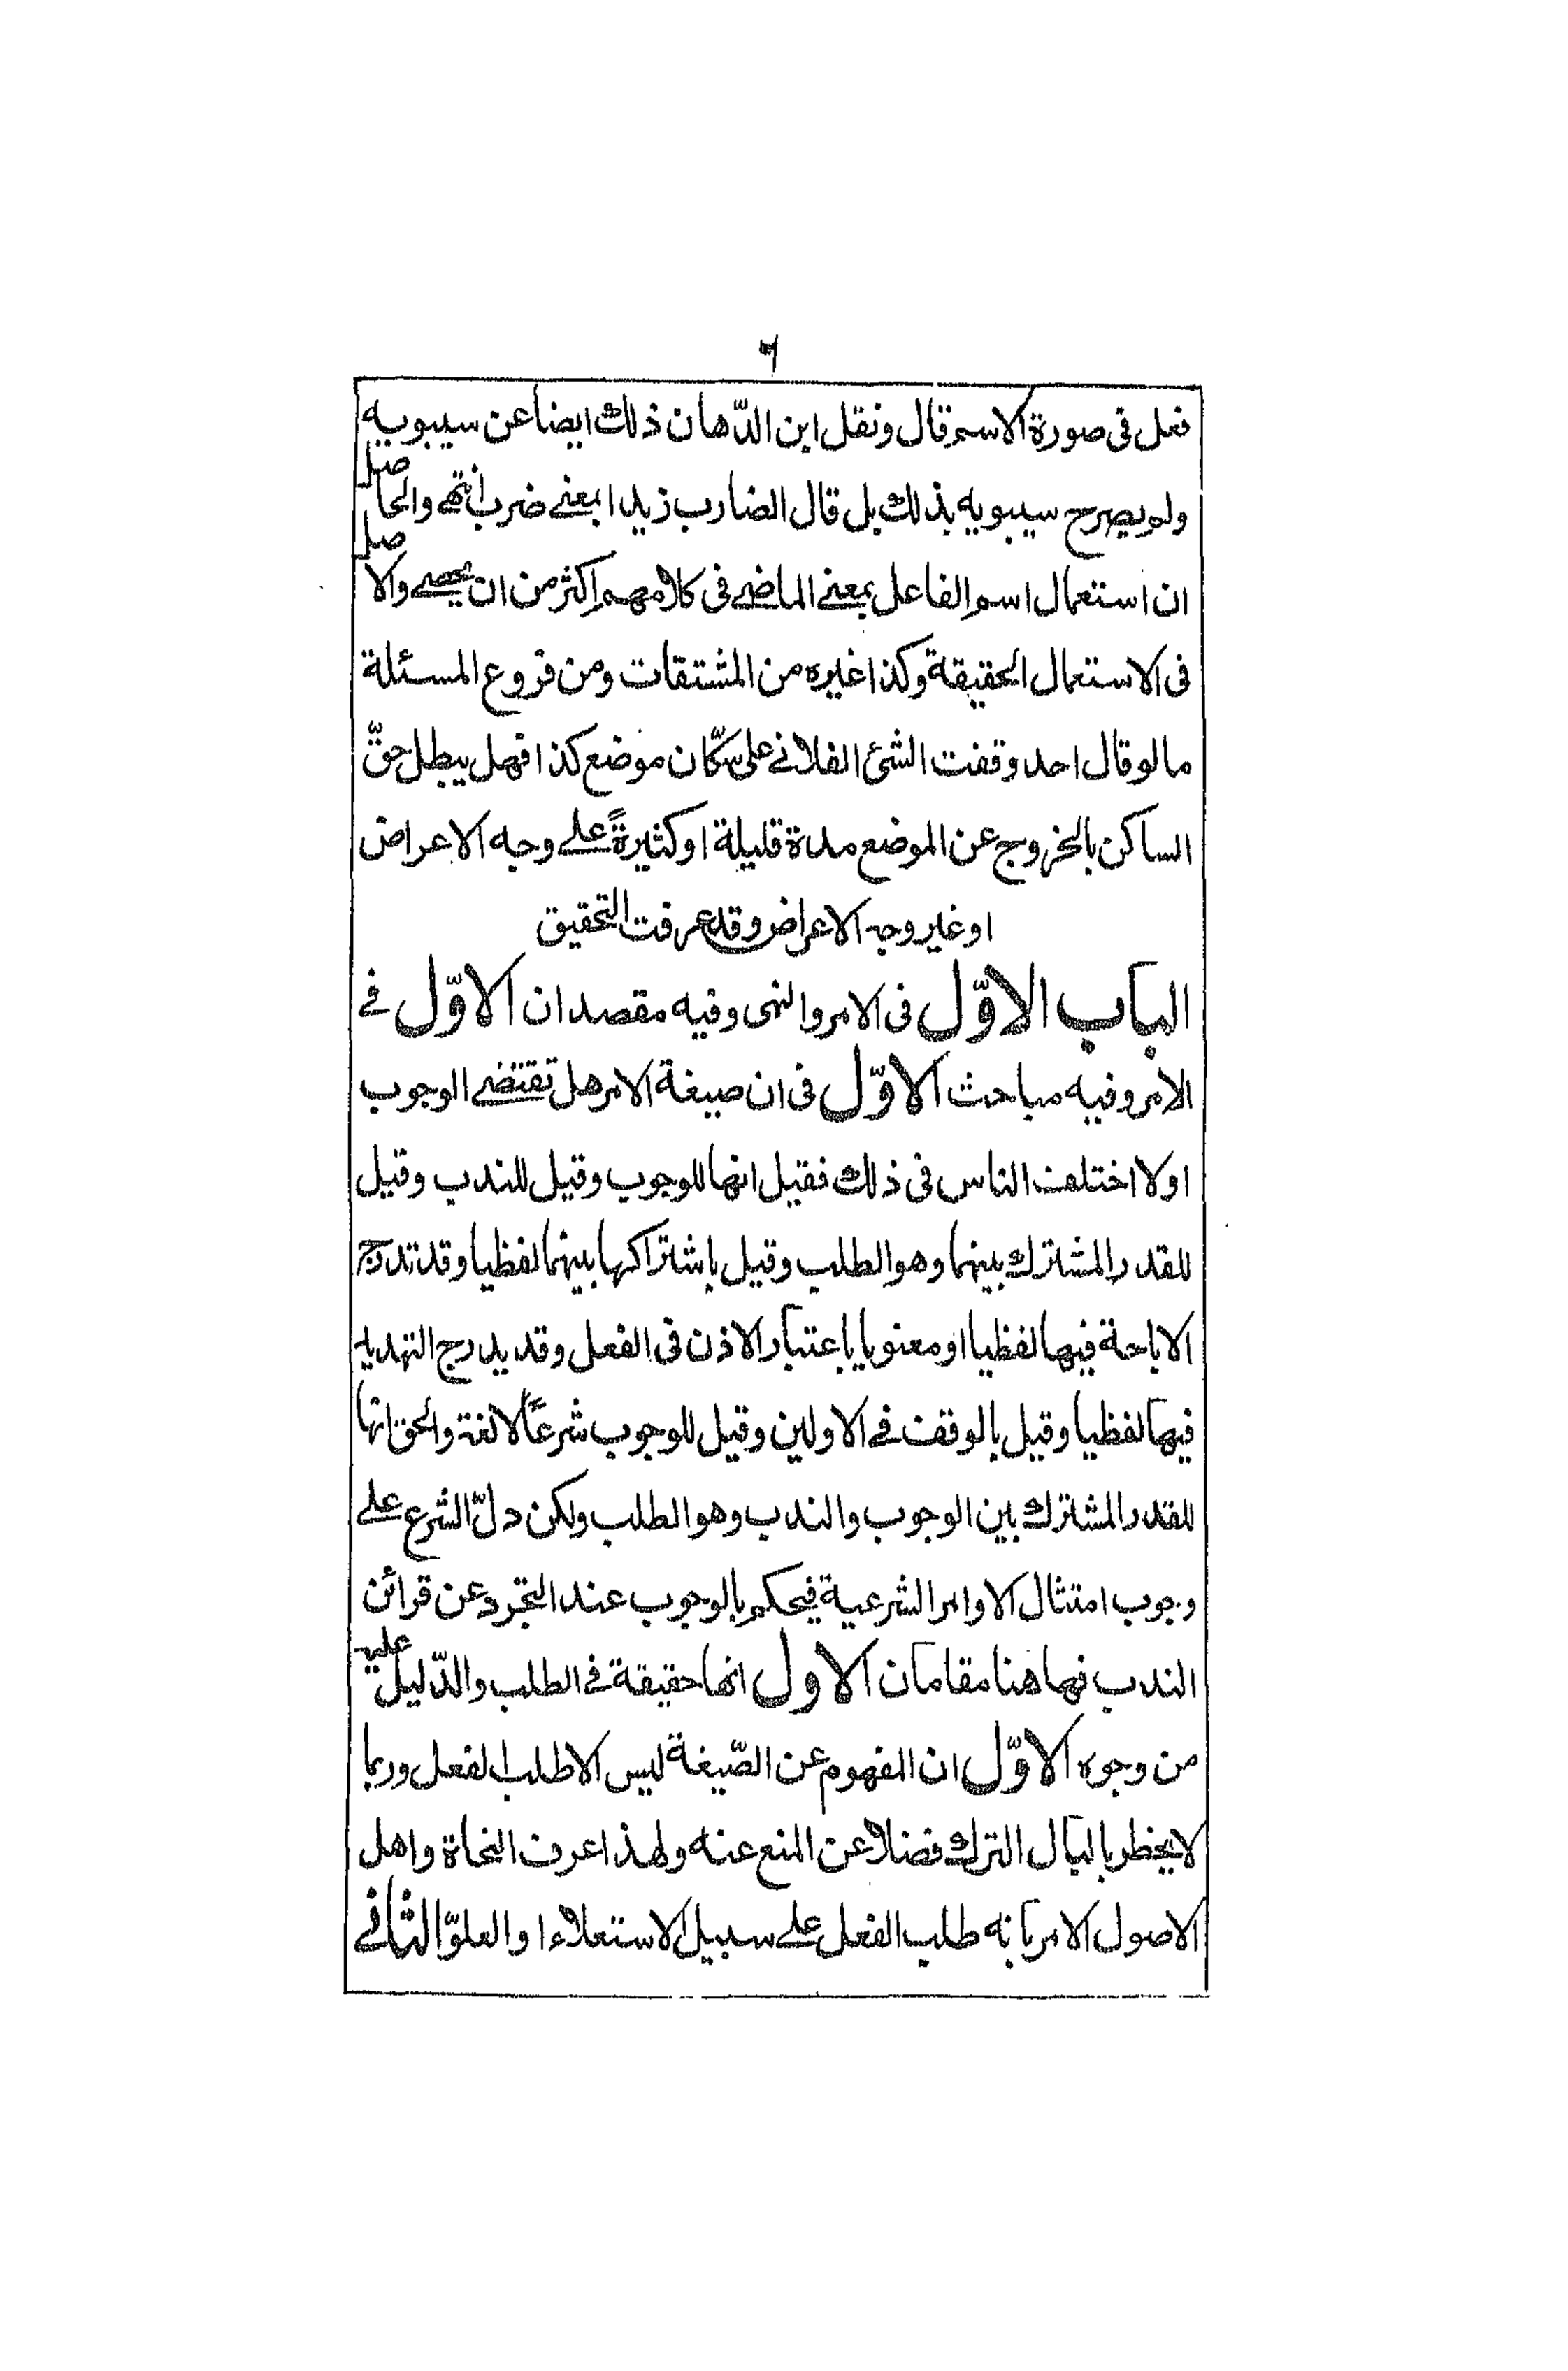 ٦
فعل فى صورة الاسم قال ونقل ابن الدّهان ذلك ايضا عن سيبويه
ولم يصرح سيبويه بذلك بل قال الضارب زيدا بمعنے ضرب انتهے والحاصل
ان استعمال اسم الفاعل بمعنے الماضے فى كلامهم اكثر من ان يحصے والاصل
فى الاستعمال الحقيقة وكذا غيره من المشتقات ومن فروع المسئلة
ما لو قال احد وقفت الشئ الفلانے على سكّان موضع كذا فهل يبطل حقّ
الساكن بالخروج عن الموضع مدة قليلة او كثيرةً علے وجه الاعراض
او غير وجه الاعراض وقد عرفت التحقيق
الباب الاوّل فى الامر والنهى وفيه مقصدان الاوّل فے
الامر وفيه مباحث الاوّل فى ان صيغة الامر هل تقتضے الوجوب
اولا اختلف الناس فى ذلك فقيل انها للوجوب وقيل للندب وقيل
للقدر المشترك بينهما وهو الطلب وقيل باشتراكها بينهما لفظيا وقد تدرج
الاباحة فيها لفظيا او معنويا باعتبار الاذن فى الفعل وقد يدرج التهديد
فيها لفظيا وقيل بالوقف فے الاولين وقيل للوجوب شرعًا لا لغة والحق انها
للقدر المشترك بين الوجوب والندب وهو الطلب ولكن دلّ الشرع علے
وجوب امتثال الاوامر الشرعية فيحكم بالوجوب عند التجرد عن قرائن
الندب فههاهنا مقامان الاول انها حقيقة فے الطلب والدّليل عليه
من وجوه الاوّل ان المفهوم عن الصّيغة ليس الا طلب الفعل وربما
لا يخطر بالبال الترك فضلا عن المنع عنه ولهذا عرف النحاة واهل
الاصول الامر بانه طلب الفعل علے سبيل الاستعلاء او العلوّ الثانے